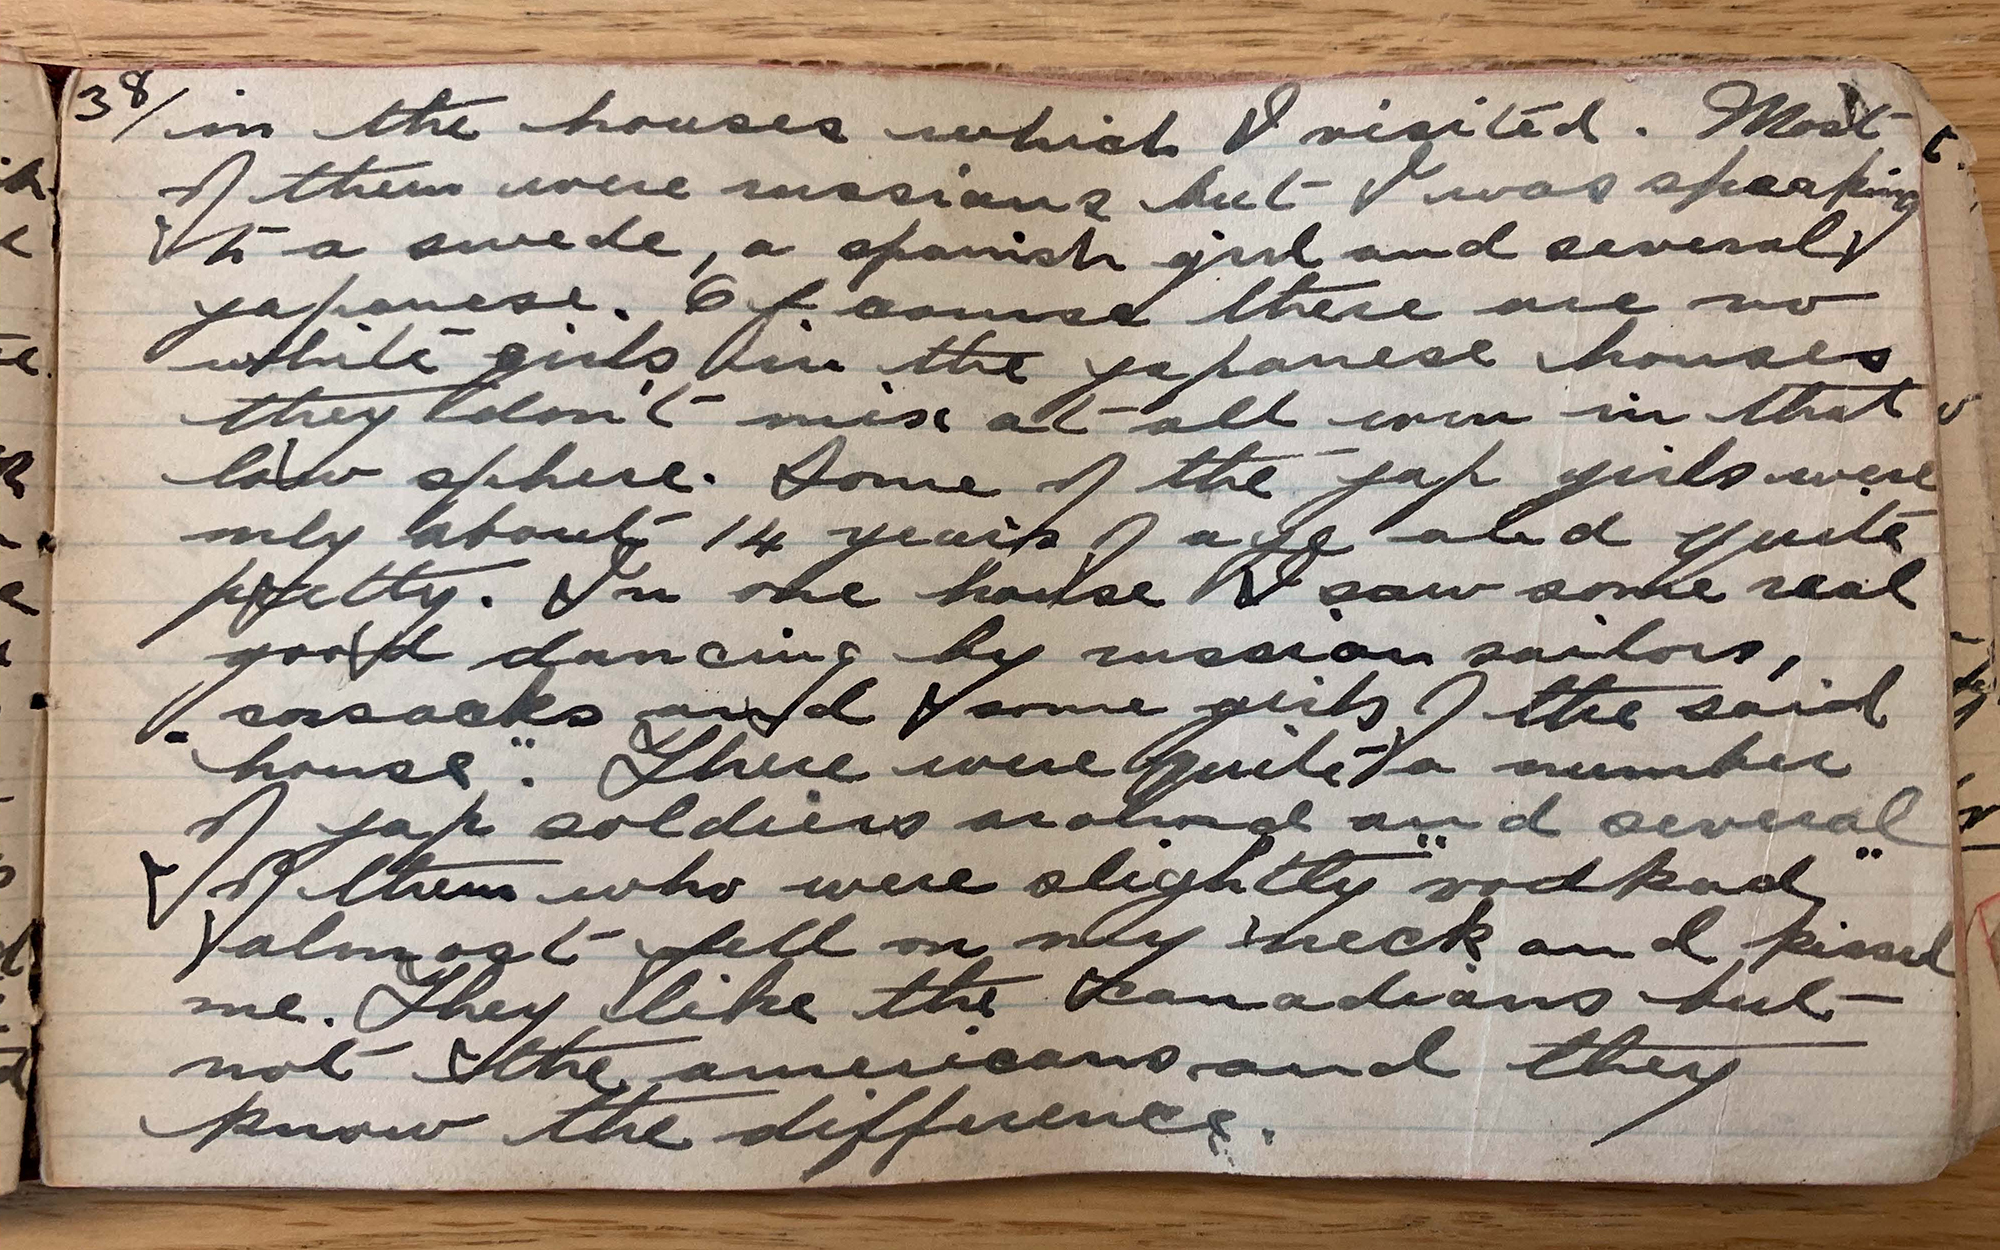 38/ in the houses which I visited. Most
of them were russians but I was speaking
to a swede, a spanish girl and several
japanese. Of course there are no
white girls in the japanese houses
they don't mix at all even in that
low sphere. Some of the jap girls were
only about 14 years of age and quite
pretty. In one house I saw some real
good dancing by russian sailors,
cossacks and "some girls of the said
house". There were quite a number
of jap soldiers around and several
of them who were slightly "vodkad"
almost fell on my neck and kissed
me. They like the Canadians but
not the americans and they
know the difference.